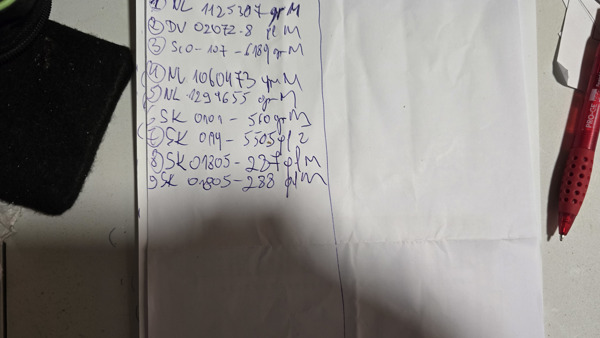 1 NL 1125307 gr M
2 DV 02072-8 fl M
3 Sco-107-6189 gr M
4 NL 1060473 gr M
5 NL 1294655 gr M
SK 0101-560 gr M
7 SK 0119-5505 fl 2
8 SK 01805-287 fl M
9 SK 01805-288 fl M